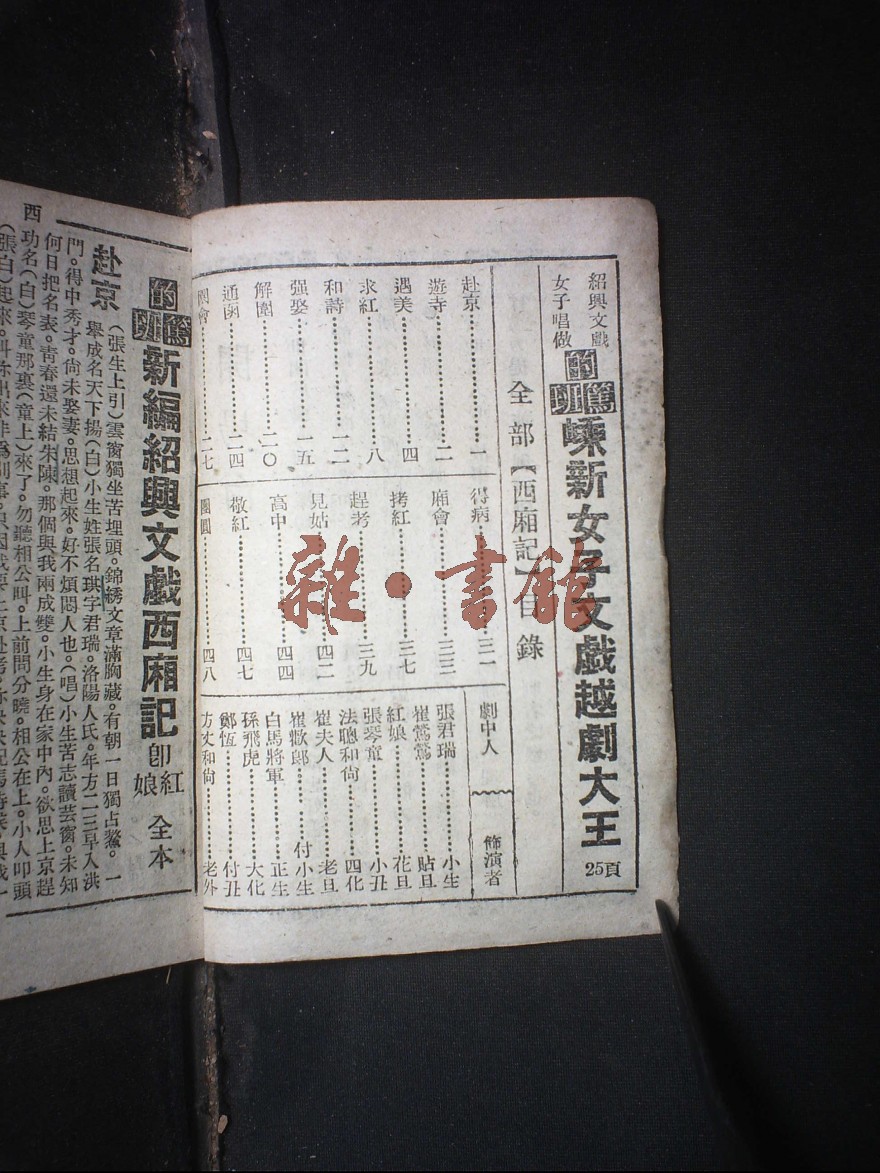 紹興文戲
女子唱做
的篤班
嵊新女子文戲越劇大王
25頁
全部【西廂記】目錄
赴京……一
遊寺……二
遇美……四
求紅……八
和詩……一二
强娶……一五
解圍……二〇
通函……二四
二七
得病……三一
廂會……三三
拷紅……三七
趕考……三九
見姑……四二
高中……四四
敬紅……四七
團圓……四八
劇中人 飾演者
張君瑞……小生
崔鶯鶯……貼旦
紅娘……花旦
張琴童……小丑
法聰和尚……四化
崔夫人……老旦
崔歡郎……付小生
白馬將軍……正生
孫飛虎……大化
鄭恆……付丑
方丈和尙……老外
的篤班
新編紹興文戲西廂記
即紅娘
全本
赴京
(張生上引)雲窗獨坐苦埋頭。錦綉文章滿胸藏。有朝一日獨占鰲。一
舉成名天下揚(白)小生姓張名珙字君瑞。洛陽人氏。年方二三早入洪
門。得中秀才。尙未娶妻。思想起來。好不煩悶人也。(唱)小生苦志讀芸窗。未知
何日把名表。靑春還未結朱陳。那個與我兩成雙。小生身在家中內。欲思上京趕
功名(白)琴童那裏(童上)來了。勿聽相公叫。上前問分曉。相公在上。小人叩頭
(張白)起來。
西
雜·書館